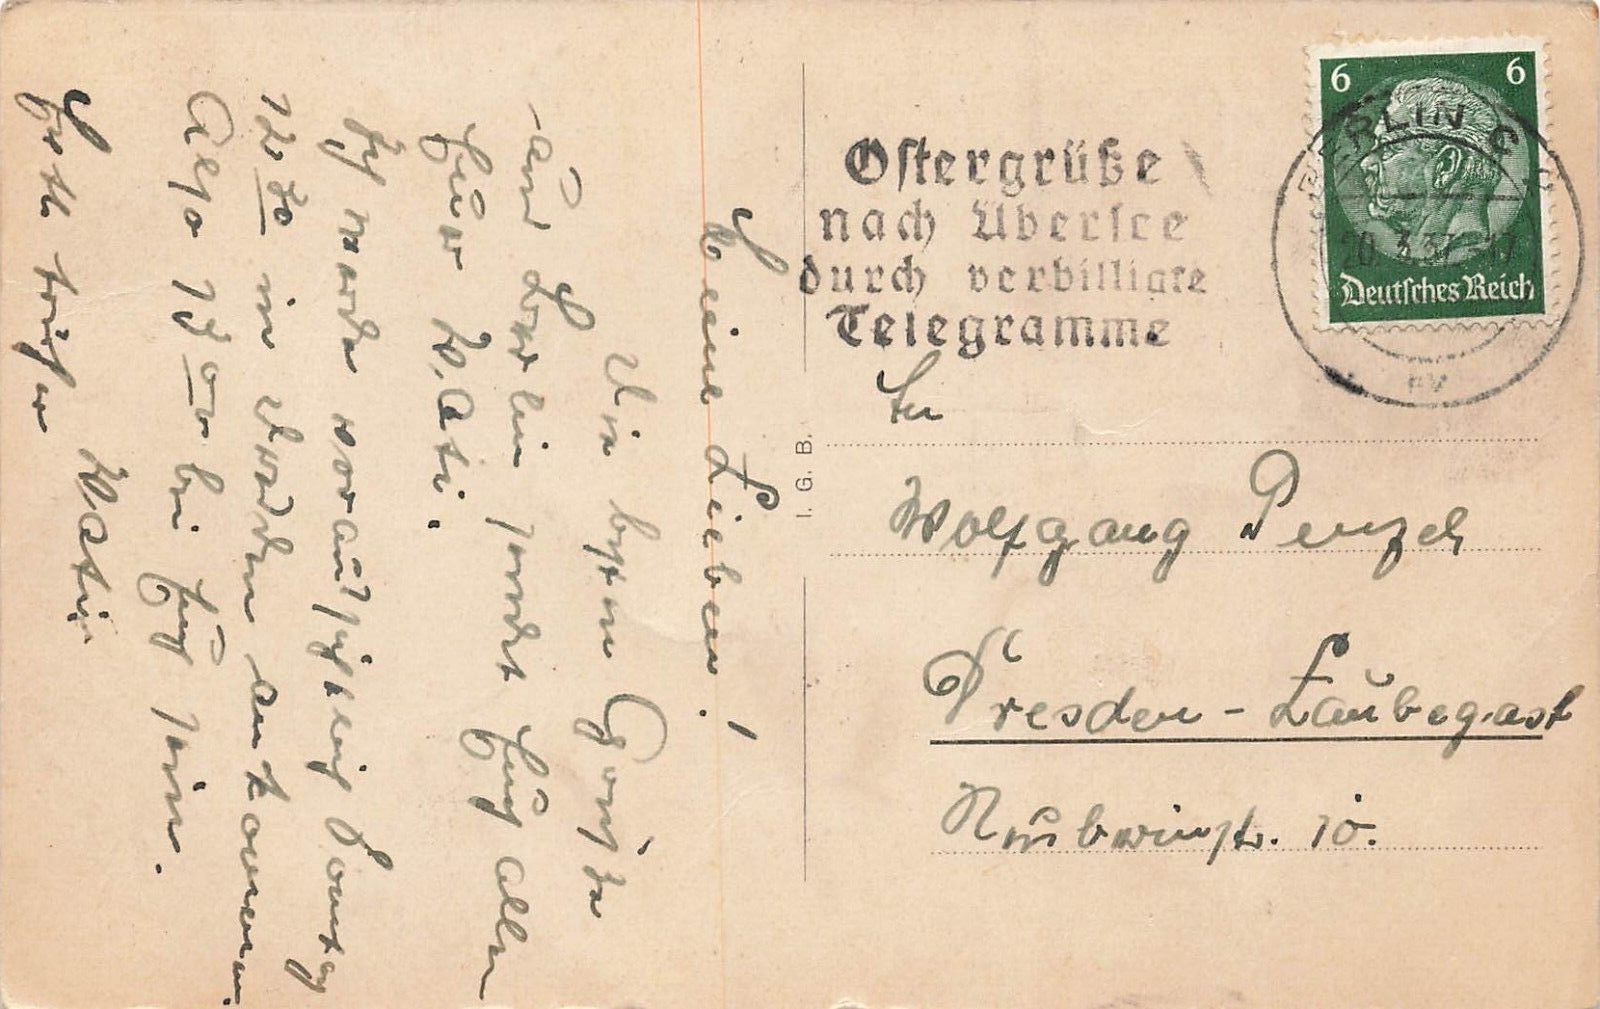 Meine Lieben!
Die besten Grüße
aus Berlin sendet Euch allen
Euer Vati.
Ich werde voraussichtlich Sonntag
12 30 in Dresden ankommen.
Also 13 00 bei Euch sein.
Vati
I. G. B.
Ostergrüße
nach Übersee
durch verbilligte
Telegramme
6 6
Deutsches Reich
BERLIN C
20.3.37. 17
An
Wolfgang Penzel
Dresden-Laubegast
Neuberinstr. 10.